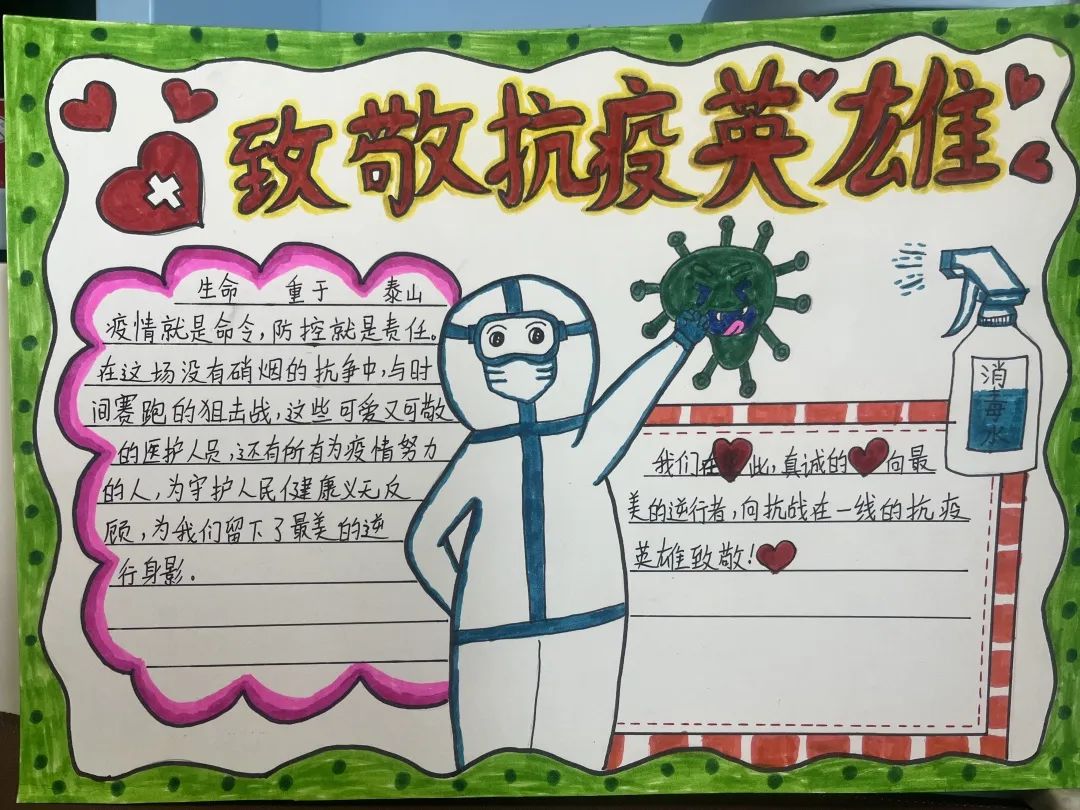 致敬抗疫英雄
生命 重于 泰山
疫情就是命令,防控就是责任。
在这场没有硝烟的抗争中,与时
间赛跑的狙击战,这些可爱又可敬
的医护人员,还有所有为疫情努力
的人,为守护人民健康义无反
顾,为我们留下了最美的逆
行身影.
消毒水
我们在此,真诚的向最
美的逆行者,向抗战在一线的抗疫
英雄致敬!